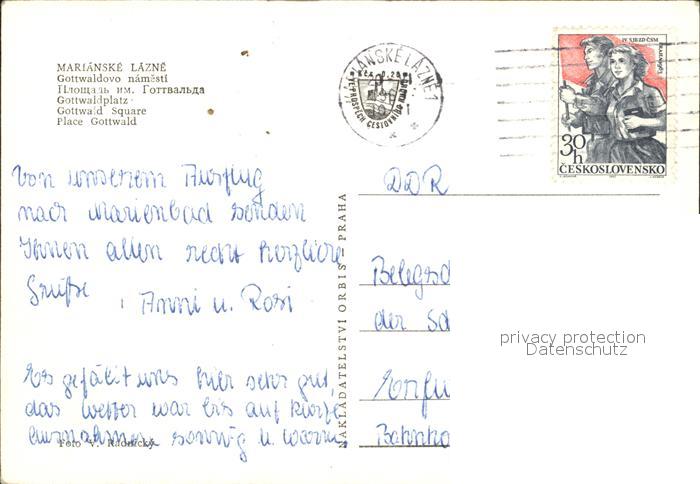 MARIÁNSKÉ LÁZNĚ
Gottwaldovo náměstí
Площадь им. Готтвальда
Gottwaldplatz
Gottwald Square
Place Gottwald
MARIÁNSKÉ LÁZNĚ 1
IV. SJEZD ČSM
30 h
ČESKOSLOVENSKO
Von unserem Ausflug
nach Marienbad senden
Ihnen allen recht herzliche
Grüße
Anni u. Rosi
Es gefällt uns hier sehr gut,
das Wetter war bis auf kurze
Ausnahmen sonnig u. warm
Foto V. Radnický
NAKLADATELSTVÍ ORBIS – PRAHA
DDR
Belegsc
der Sc
Erfu
Bahnho
privacy protection
Datenschutz